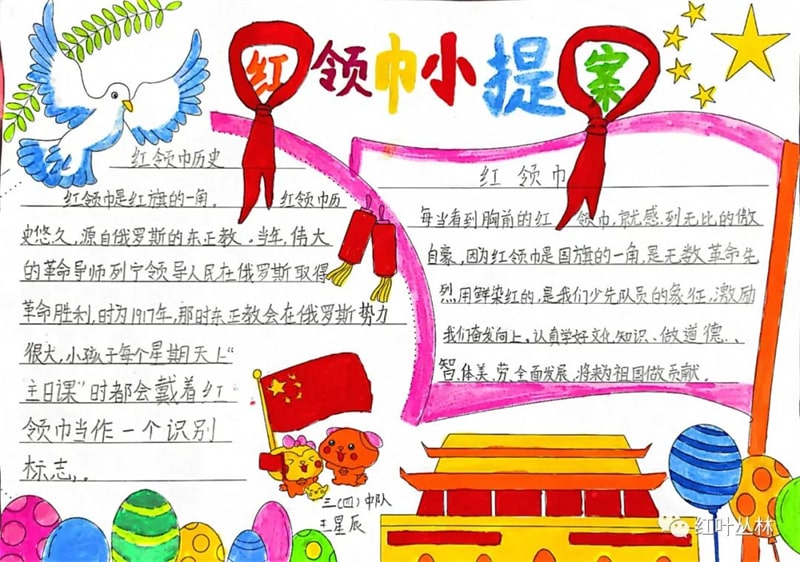 红领巾小提案
红领巾历史
红领巾是红旗的一角。 红领巾历
史悠久,源自俄罗斯的东正教。当年,伟大
的革命导师列宁领导人民在俄罗斯取得
革命胜利,时为1917年,那时东正教会在俄罗斯势力
很大,小孩子每个星期天上“
主日课”时都会戴着红
领巾当作一个识别
标志,。
红领巾
每当看到胸前的红领巾,就感到无比的傲
自豪,因为红领巾是国旗的一角,是无数革命先
烈用鲜染红的,是我们少先队员的象征,激励
我们奋发向上、认真学好文化知识、做道德、、
智、体美、劳、全面发展,将来为祖国做贡献。
三(四)中队
王星辰
红叶丛林